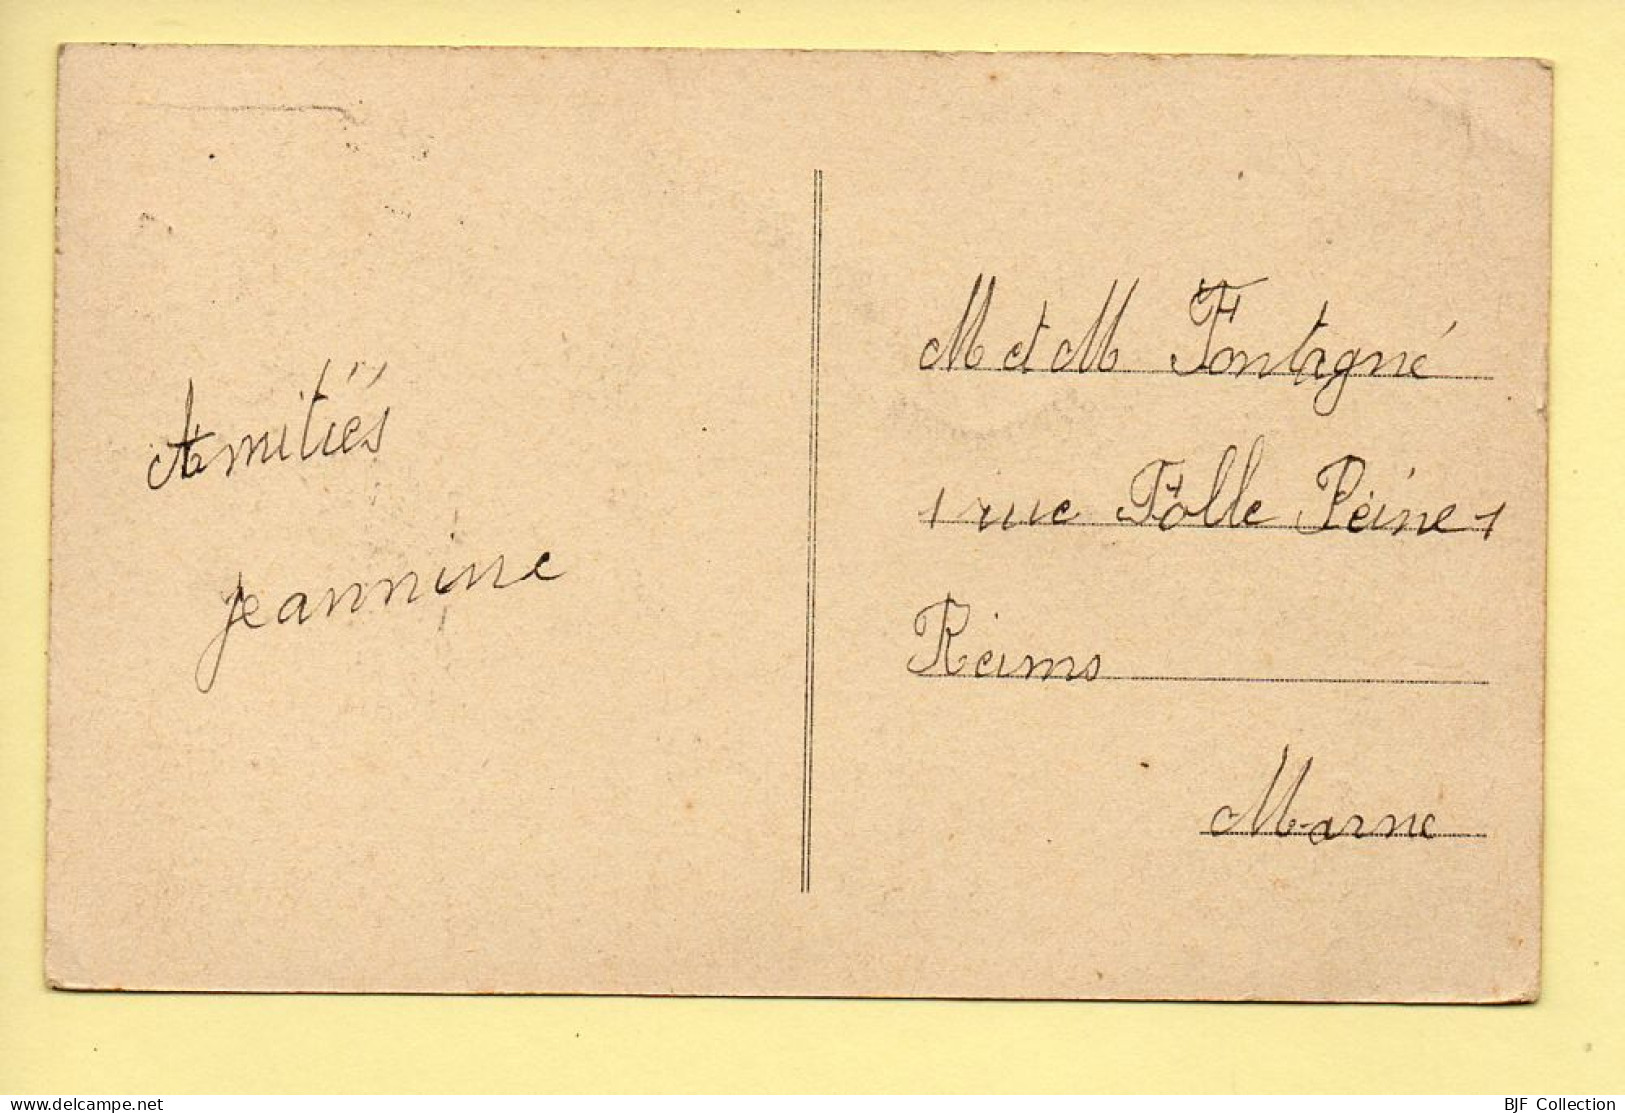 Amitiés
jeannine
M et M Fontagné
1 rue Folle Peine 1
Reims
Marne
www.delcampe.net
BJF Collection